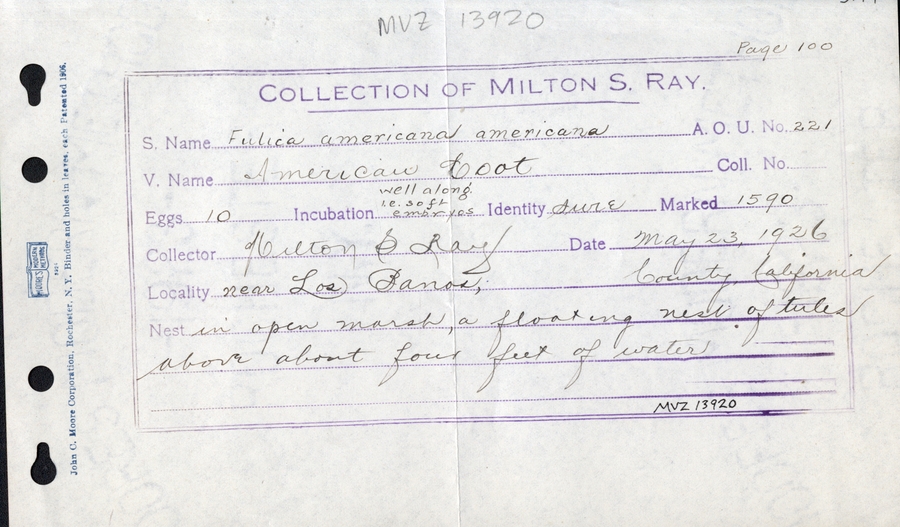 MVZ 13920
Page 100
COLLECTION OF MILTON S. RAY.
S. Name Fulica americana americana A. O. U. No. 221
V. Name American Coot Coll. No.
well along
i.e. soft
Eggs 10 Incubation embryos Identity sure Marked 1590
Collector Milton S Ray Date May 23, 1926
Locality near Los Banos, County, California
Nest in open marsh, a floating nest of tules
above about four feet of water
MVZ 13920
John C. Moore Corporation, Rochester, N. Y. Binder and holes in leaves, each Patented 1906.
MOORE'S MODERN METHODS